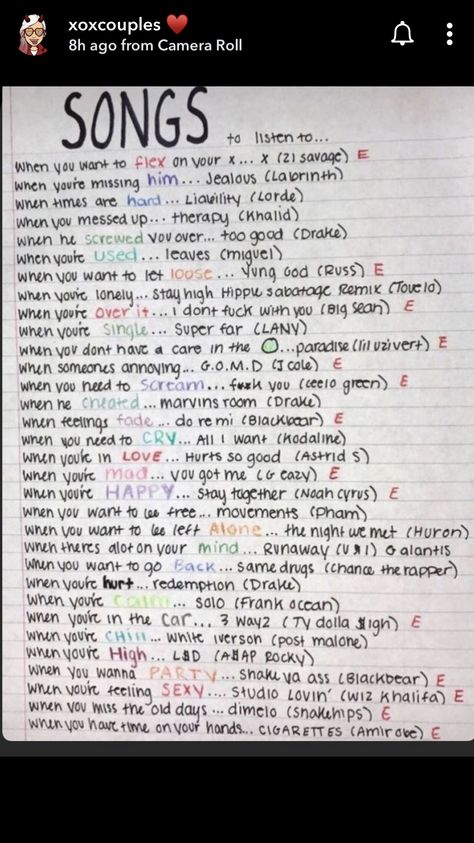 xoxcouples ❤️
8h ago from Camera Roll
SONGS to listen to...
When you want to flex on your x... x (21 savage) E
When you're missing him... Jealous (Labrinth)
When times are hard... Liability (Lorde)
When you messed up... therapy (Khalid)
when he screwed you over... too good (Drake)
When you're used... leaves (miguel)
When you want to let loose... Yung God (Russ) E
When you're lonely... Stay high Hippie Sabatage Remix (Tovelo)
When you're over it... I dont fuck with you (Big Sean) E
When you're single... Super far (LANY)
When you dont have a care in the ... paradise (lil uzivert) E
When someones annoying... G.O.M.D (J cole) E
When you need to scream... f**k you (ceelo green) E
When he cheated... marvins room (Drake)
When feelings fade... do re mi (Blackbear) E
When you need to CRY... All I want (Kodaline)
When you're in LOVE... Hurts so good (Astrid S)
When you're mad... you got me (G eazy) E
When you're HAPPY... Stay together (Noah cyrus) E
When you want to be free... movements (Pham)
When you want to be left Alone... the night we met (Huron)
When theres alot on your mind... Runaway (U & I) Galantis
When you want to go Back... same drugs (chance the rapper)
When you're hurt... redemption (Drake)
When you're calm... solo (Frank ocean)
When you're in the car... 3 wayz (TY dolla $ign) E
When you're chill... white iverson (post malone)
When you're High... L$D (A$AP ROCKY)
When you wanna PARTY... shake ya ass (Blackbear) E
When you're feeling SEXY.... Studio Lovin' (Wiz Khalifa) E
When you miss the old days... dimelo (snakehips) E
When you have time on your hands... CIGARETTES (Amir obe) E